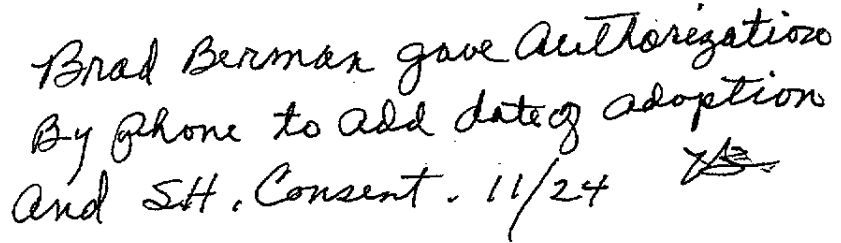 Brad Berman gave authorization
By phone to add date of adoption
and SH. Consent. 11/24